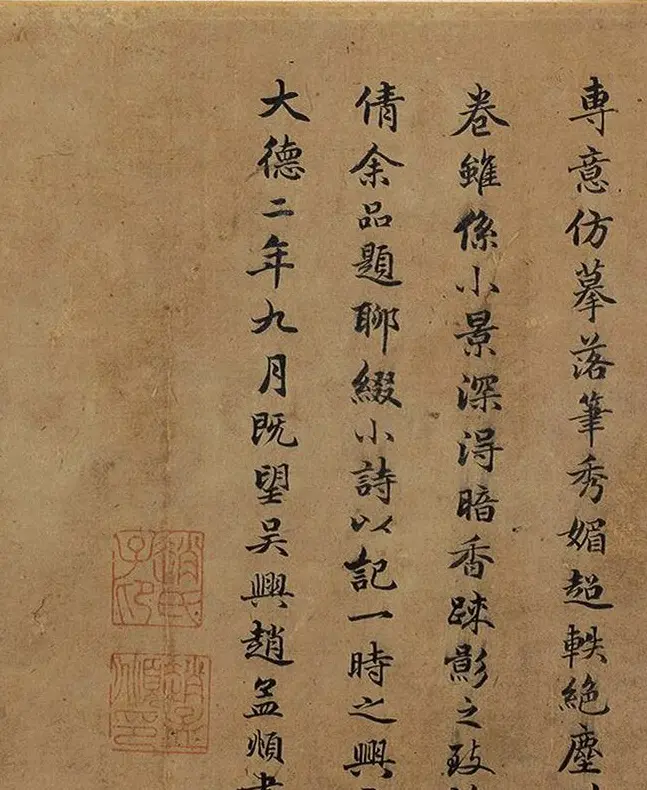 専意仿摹落筆秀媚超軼絶塵
卷雖係小景深淂暗香踈影之致
倩余品題聊綴小詩以記一時之興
大德二年九月既望吳興趙孟頫書
趙氏子昂
趙孟頫印